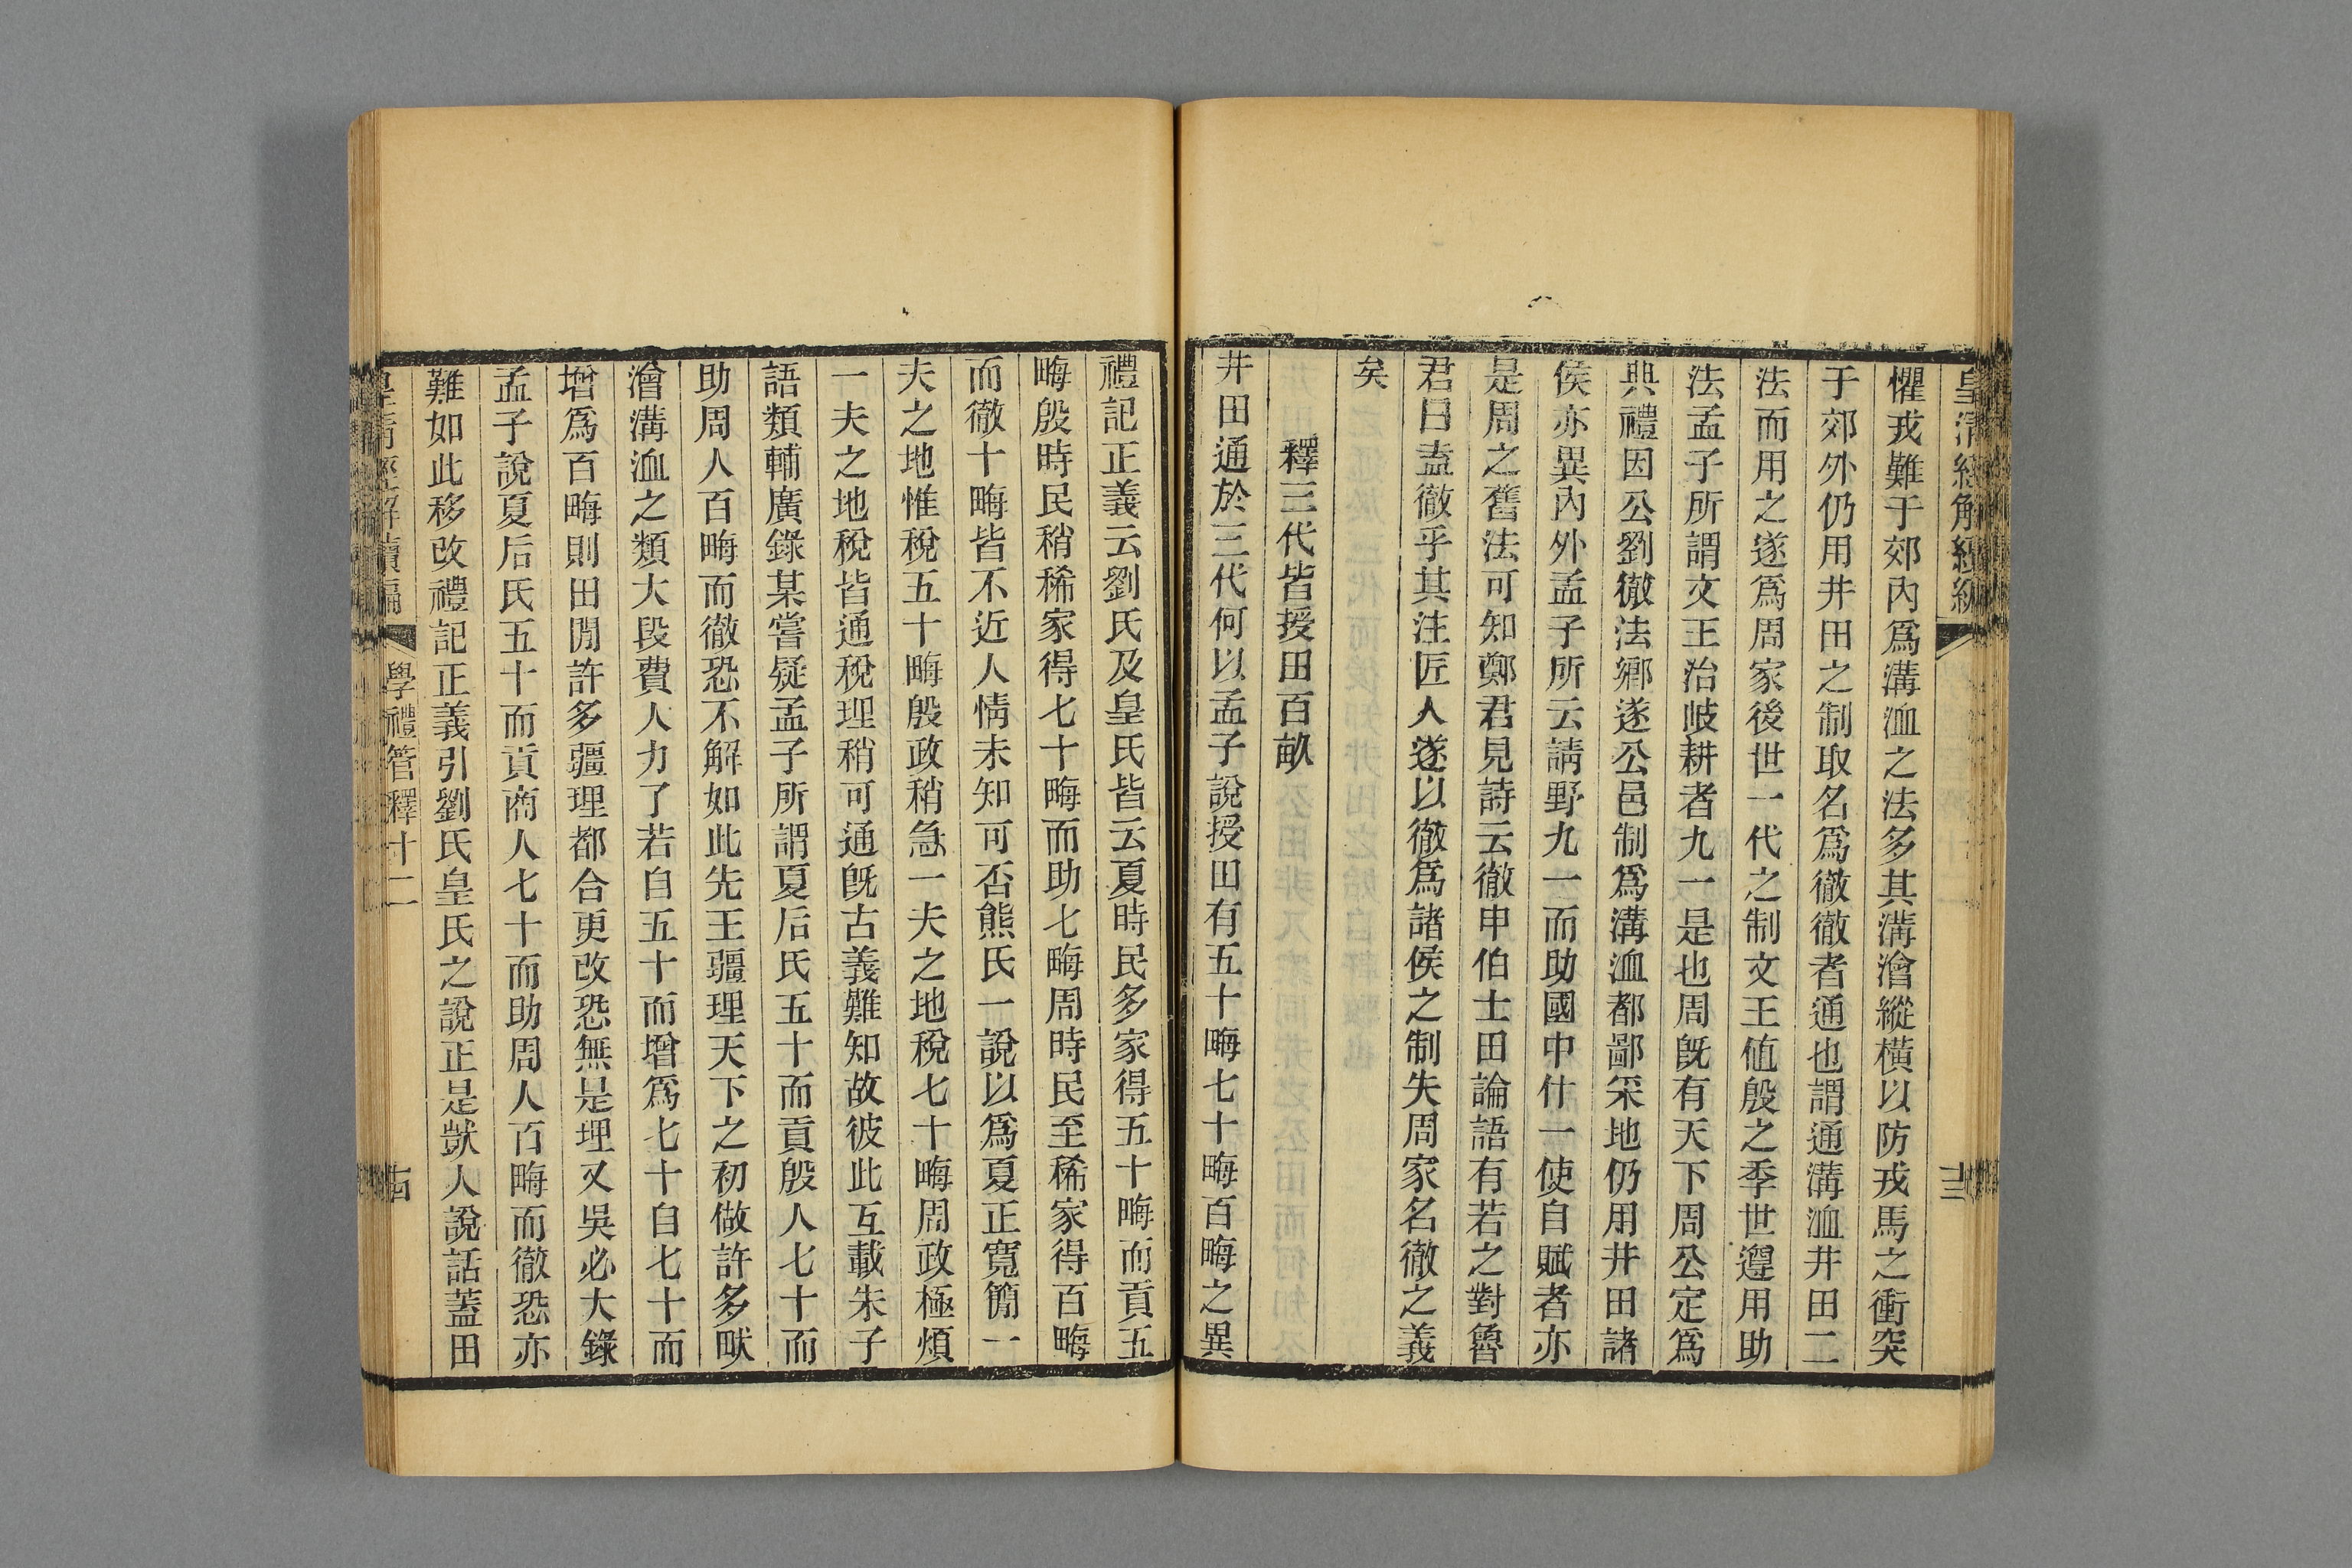 皇清經解續編
十三
懼戎難于郊內爲溝洫之法多其溝澮縱橫以防戎馬之衝突
于郊外仍用井田之制取名爲徹徹者通也謂通溝洫井田二
法而用之遂爲周家後世一代之制文王値殷之季世遵用助
法孟子所謂文王治岐耕者九一是也周旣有天下周公定爲
典禮因公劉徹法鄉遂公邑制爲溝洫都鄙采地仍用井田諸
侯亦異內外孟子所云請野九一而助國中什一使自賦者亦
是周之舊法可知鄭君見詩云徹申伯士田論語有若之對魯
君曰盍徹乎其注匠人遂以徹爲諸侯之制失周家名徹之義
矣
釋三代皆授田百畝
井田通於三代何以孟子說授田有五十畮七十畮百畮之異
禮記正義云劉氏及皇氏皆云夏時民多家得五十畮而貢五
畮殷時民稍稀家得七十畮而助七畮周時民至稀家得百畮
而徹十畮皆不近人情未知可否熊氏一說以爲夏正寬簡一
夫之地惟稅五十畮殷政稍急一夫之地稅七十畮周政極煩
一夫之地稅皆通稅理稍可通旣古義難知故彼此互載朱子
語類輔廣錄某嘗疑孟子所謂夏后氏五十而貢殷人七十而
助周人百畮而徹恐不解如此先王疆理天下之初做許多畎
澮溝洫之類大段費人力了若自五十而增爲七十自七十而
增爲百畮則田閒許多疆理都合更改恐無是理又吳必大錄
孟子說夏后氏五十而貢商人七十而助周人百畮而徹恐亦
難如此移改禮記正義引劉氏皇氏之說正是獃人說話蓋田
皇清經解續編
學禮管釋十二
十四